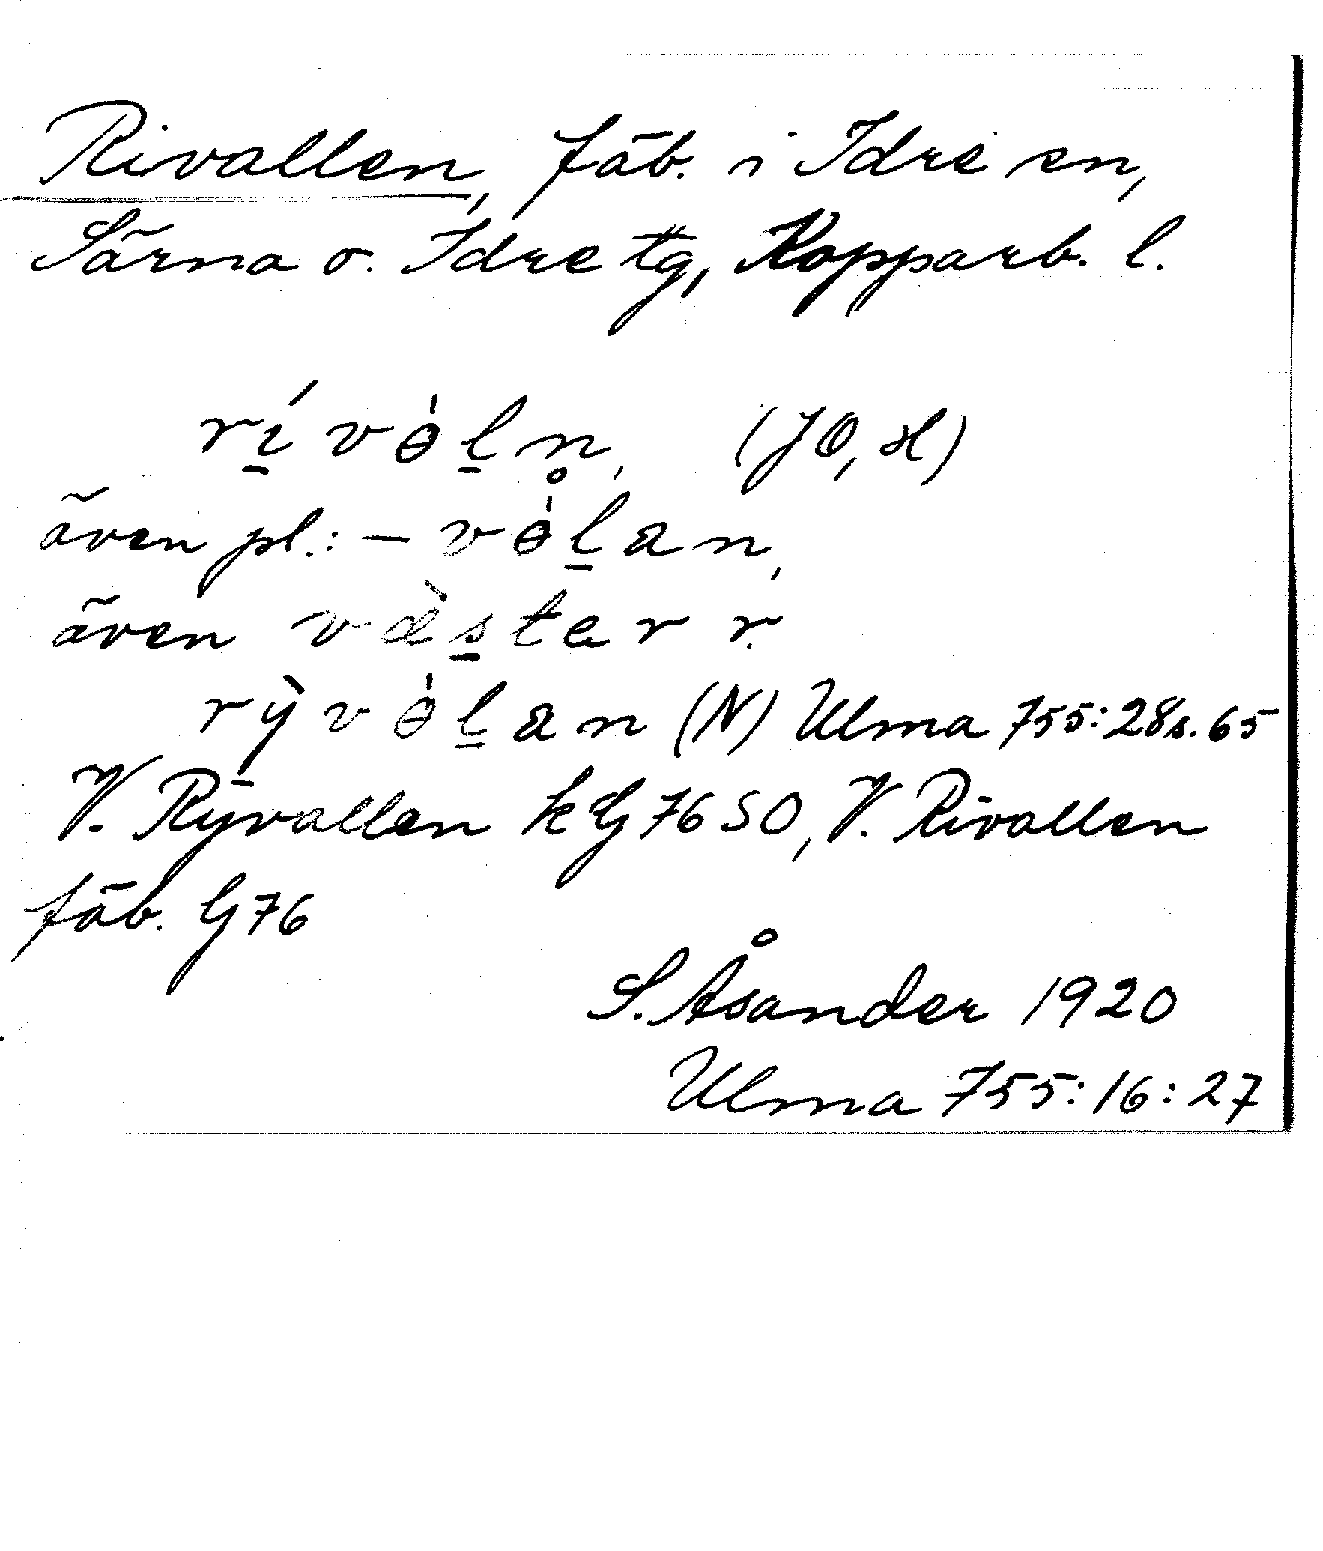 Rivallen, fäb. i Idre sn,
Särna o. Idre tg, Kopparb. l.
rí̱ vɵ̀ḻn̥, (JO, H)
även pl.: – vɵ̀ḻan,
även væ̀s̱ter r.
rỳvɵ̀ḻan (N) Ulma 755:28 s. 65
V. Rÿvallen k G 76 SO, V. Rivallen
fäb. G 76
S. Åsander 1920
Ulma 755:16:27